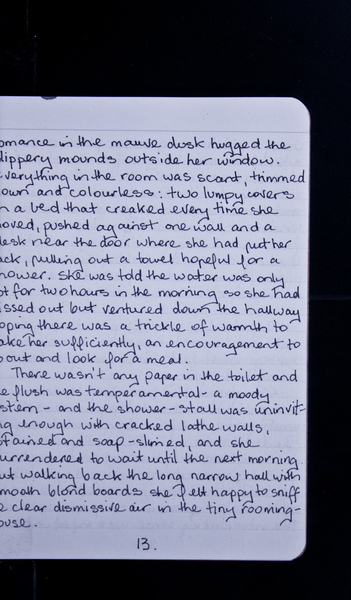 omance in the mauve dusk hugged the
lippery mounds outside her window.
Everything in the room was scant, trimmed
own and colourless: two lumpy covers
n a bed that creaked every time she
oved, pushed against one wall and a
desk near the door where she had put her
ack, pulling out a towel hopeful for a
hower. She was told the water was only
ot for two hours in the morning so she had
issed out but ventured down the hallway
oping there was a trickle of warmth to
ake her sufficiently, an encouragement to
o out and look for a meal.
There wasn't any paper in the toilet and
e flush was temperamental - a moody
stem - and the shower-stall was uninvit-
ng enough with cracked lathe walls,
tained and soap-slimed, and she
urrendered to wait until the next morning.
ut walking back the long narrow hall with
mooth blond boards she felt happy to sniff
e clear dismissive air in the tiny rooming-
ouse.
13.